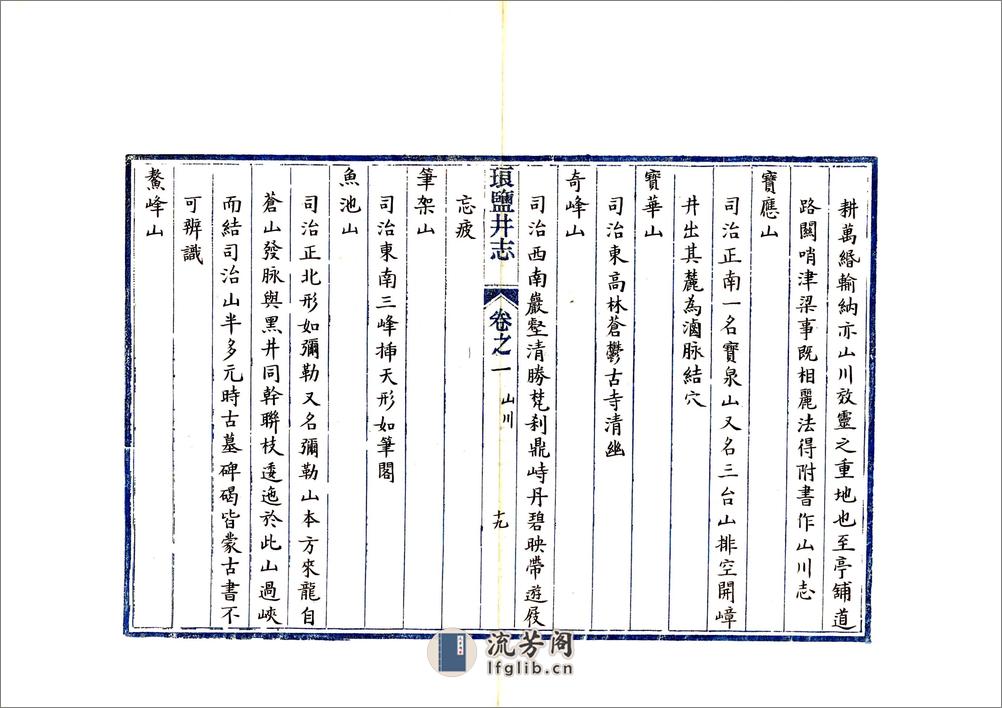 耕萬緡輸納亦山川效靈之重地也至亭鋪道
路關哨津梁事既相麗法得附書作山川志
寶應山
司治正南一名寶泉山又名三台山排空開嶂
井出其麓為滷脉結穴
寶華山
司治東高林蒼鬱古寺清幽
奇峰山
司治西南巖壑清勝梵刹鼎峙丹碧映帶遊屐
琅鹽井志
卷之一
山川
十九
忘疲
筆架山
司治東南三峰挿天形如筆閣
魚池山
司治正北形如彌勒又名彌勒山本方來龍自
蒼山發脉與黑井同幹聯枝逶迤於此山過峽
而結司治山半多元時古墓碑碣皆蒙古書不
可辨識
鰲峰山
流芳阁
lfglib.cn